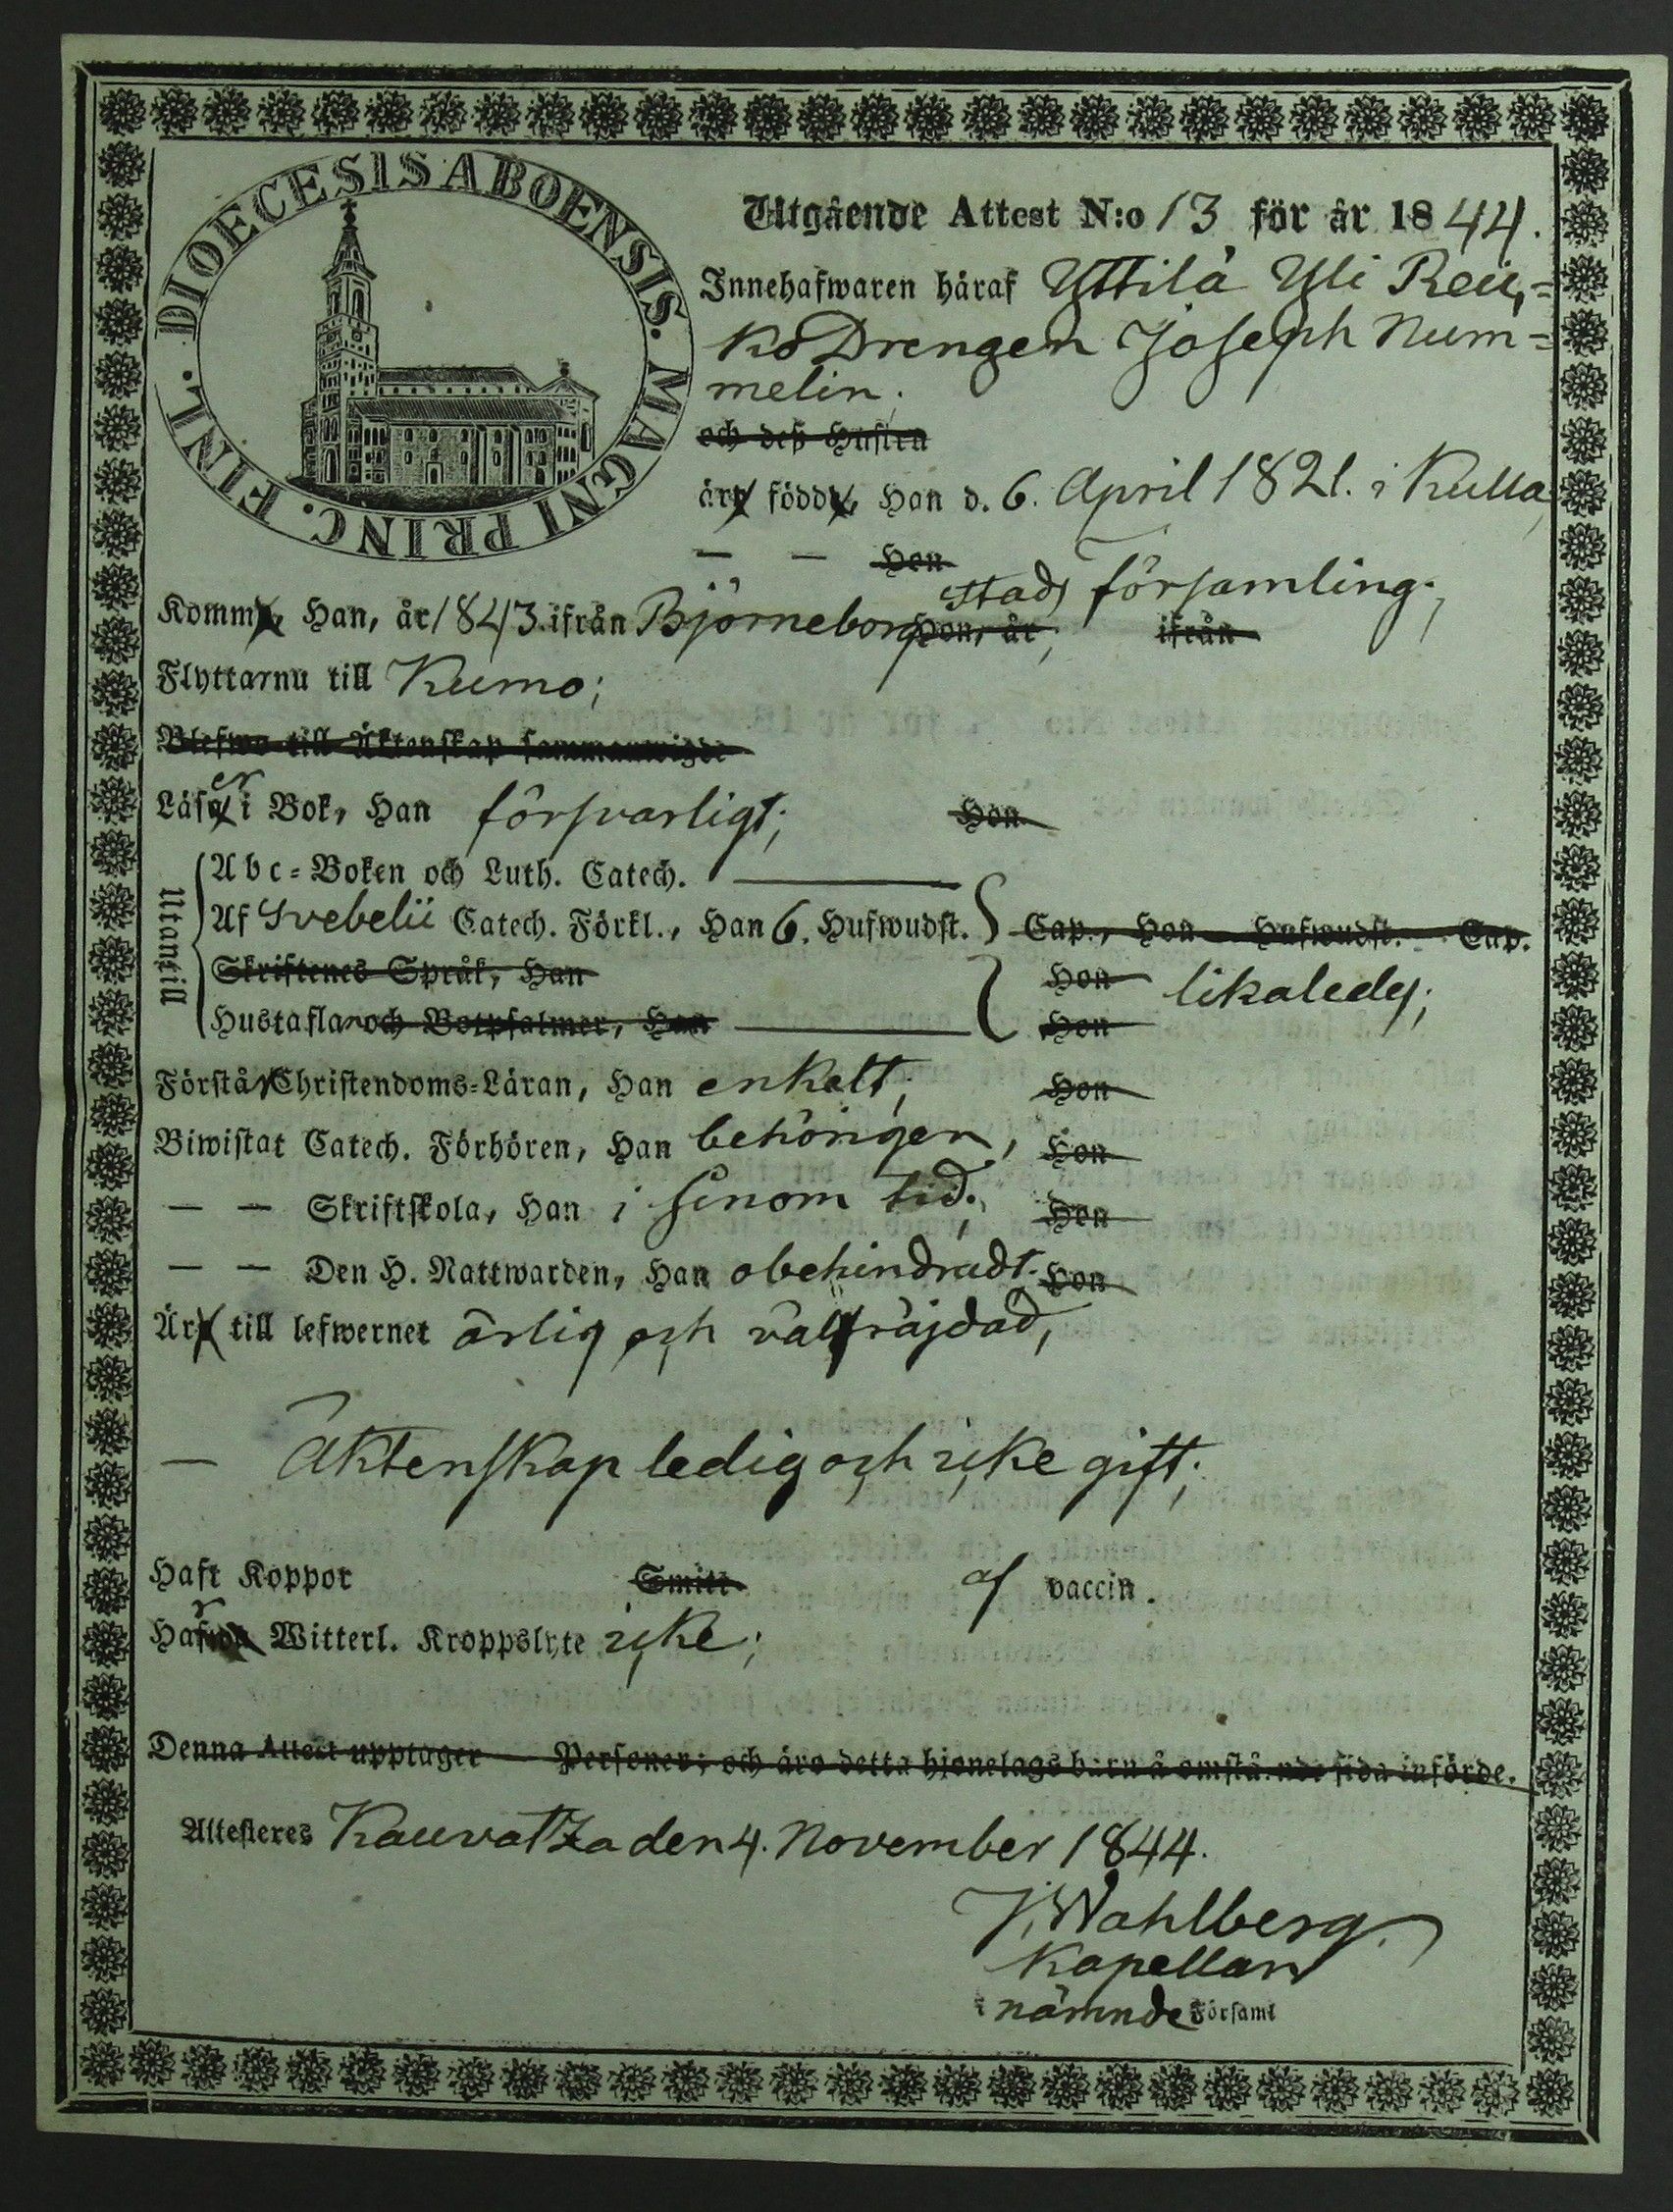 DIOECESIS ABOENSIS. MAGNI PRINC. FINL.
Utgående Attest N:o 13 för år 1844.
Innehafwaren häraf Yttilä Yli Rei,=
ko Drengen Joseph Num=
melin.
och deß Hustru
äro födde, Han d. 6. April 1821. i Kulla
— — Hon
stads församling;
Komm, Han, år 1843 ifrån Björneborgs Hon, år, ifrån
Flyttar nu till Kumo;
Blefwo till Äktenskap sammanwigde
Läser i Bok, Han försvarligt; Hon
Utantill
Abc=Boken och Luth. Catech.
Af Svebelii Catech. Förkl., Han 6. Hufwudst. Cap., Hon Hufwudst. Cap.
Skriftenes Språk, Han Hon likaledes;
Hustaflan och Botpsalmer, Han Hon
Förstår Christendoms=Läran, Han enkelt; Hon
Biwistat Catech. Förhören, Han behörigen, Hon
— — Skriftskola, Han i sinom tid; Hon
— — Den H. Nattwarden, Han obehindradt. Hon
Är till lefwernet ärlig och välfräjdad,
— Äktenskap ledig och icke gift;
Haft Koppor Smitt af vaccin.
Har Witterl. Kroppslyte icke;
Denna Attest upptager — Personer; och äro detta hjonelags barn å omstående sida införde.
Attesteres Kauvatza den 4. November 1844.
J. Wahlberg.
Kapellan
i nämnde Församl